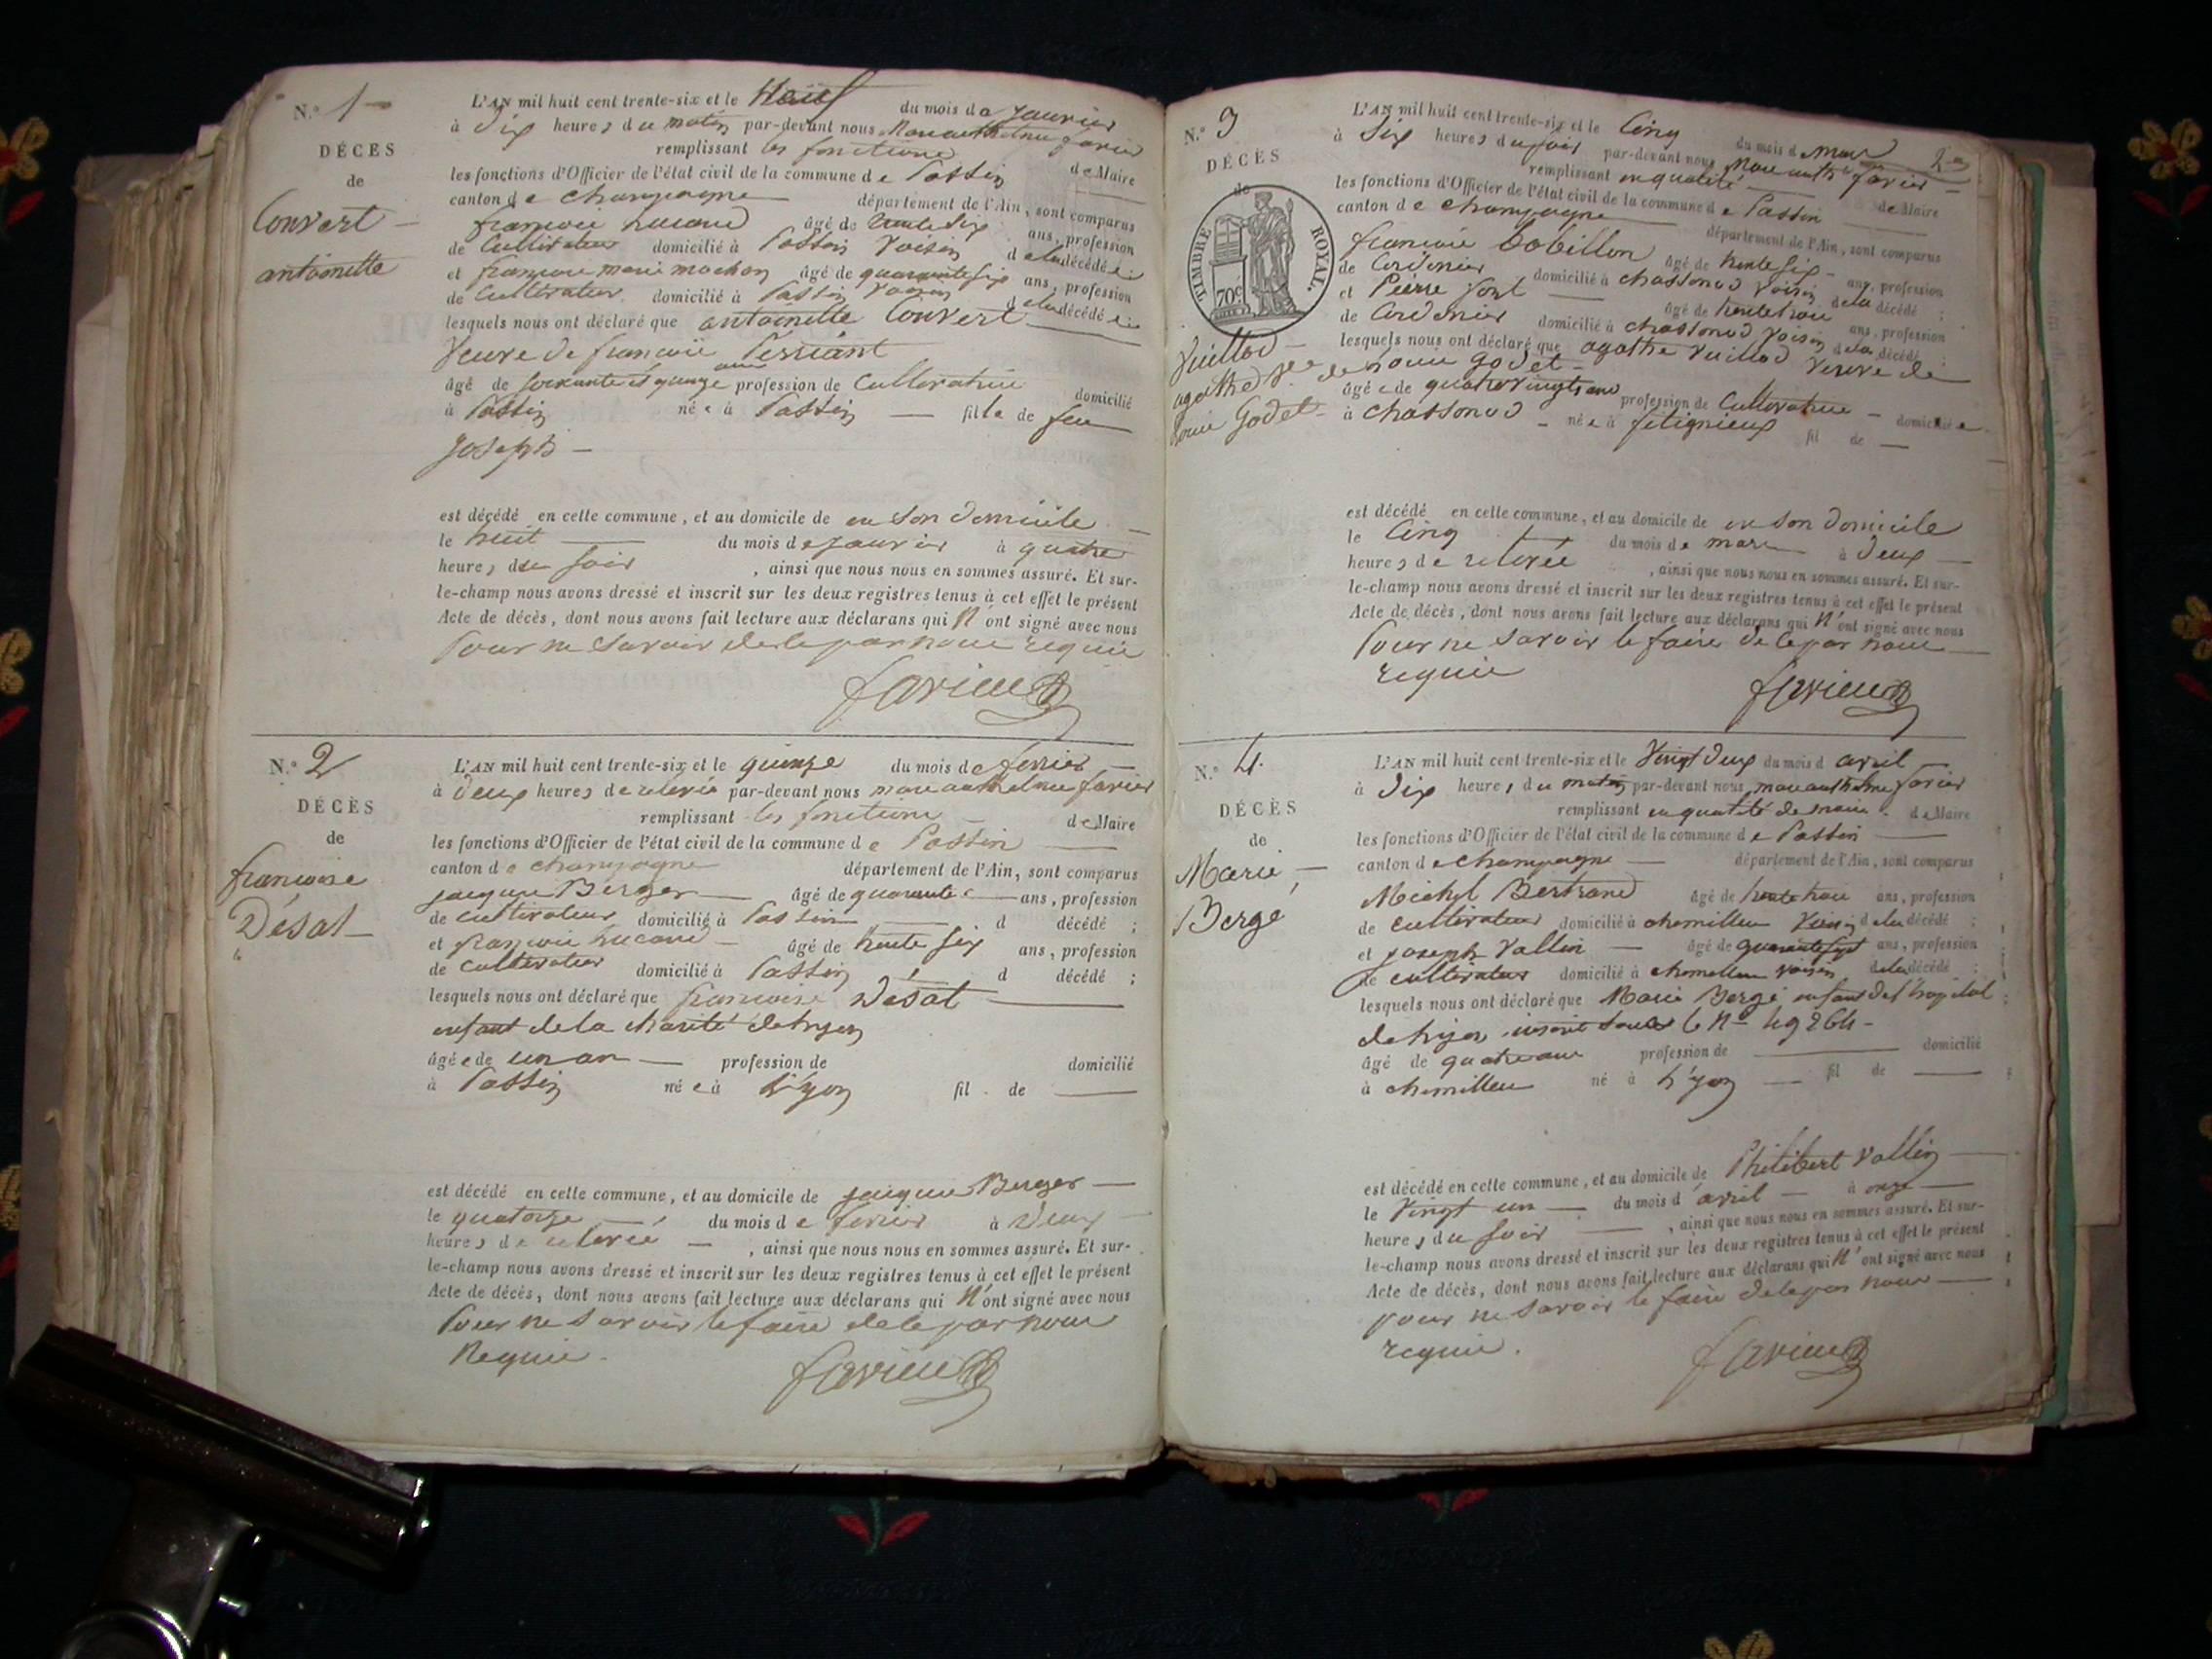 N.° 1
DÉCES
de
Convert
antoinette
L'AN mil huit cent trente-six et le Neuf du mois de janvier
à dix heures du matin par-devant nous favier
remplissant les fonctions de Maire
les fonctions d'Officier de l'état civil de la commune de Passin
canton de champagne département de l'Ain, sont comparus
françois âgé de trente six ans, profession
de Cultivateur domicilié à Passin Voisin de la décédée
et françois marie mochon âgé de quarante six ans, profession
de Cultivateur domicilié à Passin Voisin de la décédée
lesquels nous ont déclaré que antoinette Convert
Veuve de françois
âgé de soixante et quinze ans profession de Cultivatrice domicilié
à Passin née à Passin fille de feu
joseph
est décédé en cette commune, et au domicile de en son domicile
le huit du mois de janvier à quatre
heures du soir , ainsi que nous nous en sommes assuré. Et sur-
le-champ nous avons dressé et inscrit sur les deux registres tenus à cet effet le présent
Acte de décès, dont nous avons fait lecture aux déclarans qui N'ont signé avec nous
Pour ne savoir de le par nous requis
favier
N.° 2
DÉCÈS
de
francoise
Désat
L'AN mil huit cent trente-six et le quinze du mois de fevrier
à deux heures de relevée par-devant nous favier
remplissant les fonctions de Maire
les fonctions d'Officier de l'état civil de la commune de Passin
canton de champagne département de l'Ain, sont comparus
jacques Berger âgé de quarante ans, profession
de cultivateur domicilié à Passin d décédé ;
et françois âgé de trente six ans, profession
de cultivateur domicilié à Passin d décédé ;
lesquels nous ont déclaré que francoise Désat
enfant de la charité de Lyon
âgée de un an profession de domicilié
à Passin née à Lyon fil de
est décédé en cette commune, et au domicile de jacques Berger
le quatorze du mois de fevrier à deux
heures de relevée , ainsi que nous nous en sommes assuré. Et sur-
le-champ nous avons dressé et inscrit sur les deux registres tenus à cet effet le présent
Acte de décès, dont nous avons fait lecture aux déclarans qui N'ont signé avec nous
Pour ne savoir le faire de le par nous
Requis.
favier
N.° 3
DÉCÈS
de
TIMBRE ROYAL.
70c
Vuillod
agathe Vve de
Louis Godet
L'AN mil huit cent trente-six et le Cinq du mois de mars
2
à six heures du soir par-devant nous favier
remplissant en qualité de Maire
les fonctions d'Officier de l'état civil de la commune de Passin
canton de champagne département de l'Ain, sont comparus
françois bobillon âgé de trente six ans, profession
de Cordonier domicilié à chassonod voisin de la décédé ;
et Pierre font âgé de trente trois ans, profession
de Cordonier domicilié à chassonod voisin de la décédé ;
lesquels nous ont déclaré que agathe Vuillod Veuve de
de Louis Godet
âgée de quatre vingts ans profession de Cultivatrice domiciliée
à chassonod née à fitignieux fil de
est décédé en cette commune, et au domicile de en son domicile
le Cinq du mois de mars à deux
heures de relevée , ainsi que nous nous en sommes assuré. Et sur-
le-champ nous avons dressé et inscrit sur les deux registres tenus à cet effet le présent
Acte de décès, dont nous avons fait lecture aux déclarans qui N'ont signé avec nous
Pour ne savoir le faire de le par nous
requis
favier
N.° 4.
DÉCÈS
de
Marie
Bergé
L'AN mil huit cent trente-six et le Vingt deux du mois d avril
à dix heures du matin par-devant nous favier
remplissant en qualité de maire de Maire
les fonctions d'Officier de l'état civil de la commune de Passin
canton de champagne département de l'Ain, sont comparus
Michel Bertrand âgé de trente trois ans, profession
de cultivateur domicilié à chemillieu Voisin de la décédé ;
et joseph Vallin âgé de quarante sept ans, profession
de cultivateur domicilié à chemillieu voisin de la décédé ;
lesquels nous ont déclaré que Marie Bergé enfant de l'hopital
de Lyon inscrit sous le N° 49264
âgé de quatre ans profession de domicilié
à chemillieu né à Lyon fil de
est décédé en cette commune, et au domicile de Philibert Vallin
le Vingt un du mois d'avril à onze
heures du soir , ainsi que nous nous en sommes assuré. Et sur-
le-champ nous avons dressé et inscrit sur les deux registres tenus à cet effet le présent
Acte de décès, dont nous avons fait lecture aux déclarans qui N'ont signé avec nous
pour ne savoir le faire de le par nous
requis.
favier